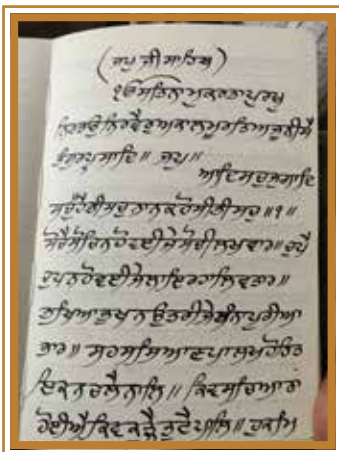 (ਜਪੁ ਜੀ ਸਾਹਿਬ)
ੴ ਸਤਿਨਾਮੁ ਕਰਤਾ ਪੁਰਖੁ
ਨਿਰਭਉ ਨਿਰਵੈਰੁ ਅਕਾਲ ਮੂਰਤਿ ਅਜੂਨੀ ਸੈ
ਭੰ ਗੁਰਪ੍ਰਸਾਦਿ ॥ ਜਪੁ ॥
ਆਦਿ ਸਚੁ ਜੁਗਾਦਿ
ਸਚੁ ਹੈ ਭੀ ਸਚੁ ਨਾਨਕ ਹੋਸੀ ਭੀ ਸਚੁ ॥੧॥
ਸੋਚੈ ਸੋਚਿ ਨ ਹੋਵਈ ਜੇ ਸੋਚੀ ਲਖ ਵਾਰ ॥ ਚੁਪੈ
ਚੁਪ ਨ ਹੋਵਈ ਜੇ ਲਾਇ ਰਹਾ ਲਿਵ ਤਾਰ ॥
ਭੁਖਿਆ ਭੁਖ ਨ ਉਤਰੀ ਜੇ ਬੰਨਾ ਪੁਰੀਆ
ਭਾਰ ॥ ਸਹਸ ਸਿਆਣਪਾ ਲਖ ਹੋਹਿ ਤ
ਇਕ ਨ ਚਲੈ ਨਾਲਿ ॥ ਕਿਵ ਸਚਿਆਰਾ
ਹੋਈਐ ਕਿਵ ਕੂੜੈ ਤੁਟੈ ਪਾਲਿ ॥ ਹੁਕਮਿ